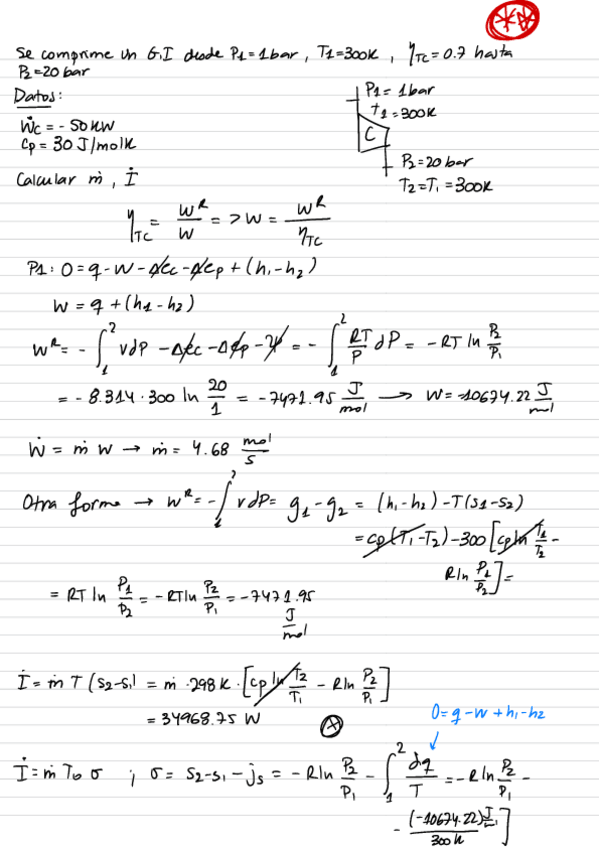 Se comprime un G.I desde P1=1bar, T1=300K, η_TC=0.7 hasta
P2=20 bar
Datos:
P1=1bar
T1=300K
C
Ẇc=-50KW
cp=30 J/molK
P2=20 bar
T2=T1=300K
Calcular ṁ, İ
η_TC = W^R/W => W = W^R/η_TC
P1: 0=q-w-Δec-Δep+(h1-h2)
W=q+(h1-h2)
W^R = -∫₁² vdP -Δec-Δep-Ψ = -∫₁² RT/P dP = -RT ln P2/P1
= -8.314·300 ln 20/1 = -7471.95 J/mol → W=-10674.22 J/mol
Ẇ=ṁ w → ṁ=4.68 mol/s
Otra forma → W^R=-∫₁² vdP= g1-g2 = (h1-h2)-T(s1-s2)
=cp(T1-T2)-300[cp ln T1/T2 -
R ln P1/P2]=
= RT ln P1/P2 = -RT ln P2/P1 = -7471.95 J/mol
İ=ṁ T(s2-s1) = ṁ·298K·[cp ln T2/T1 - R ln P2/P1]
= 34968.75 W
A
0=q-w+h1-h2
İ=ṁ T0 σ ; σ= s2-s1-js = -R ln P2/P1 - ∫₁² dq/T = -R ln P2/P1 -
- (-10674.22) J/300K]